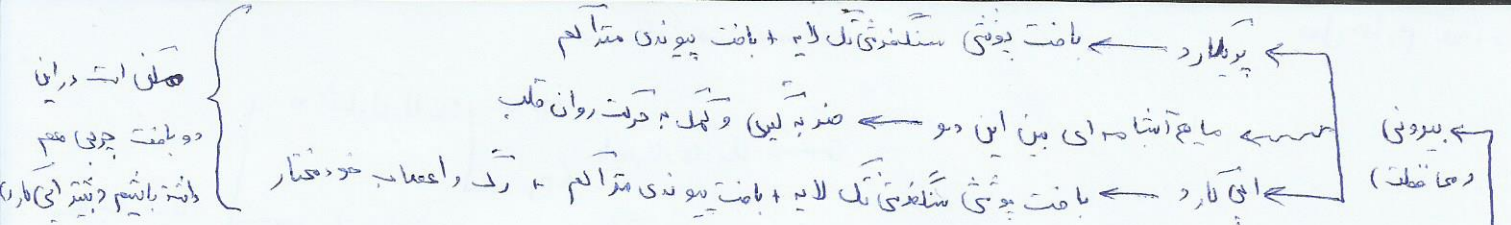 بیرونی
(محافظت)
← پریکارد ← بافت پوششی سنگفرشی تک لایه + بافت پیوندی متراکم
← مایع آبشامه ای بین این دو ← ضربه گیری و کمک به حرکت روان قلب
← اپی کارد ← بافت پوششی سنگفرشی تک لایه + بافت پیوندی متراکم + رگ و اعصاب خودمختار
ممکن است در این
دو بافت چربی هم
داشته باشیم (بیشتر اپی کارد)